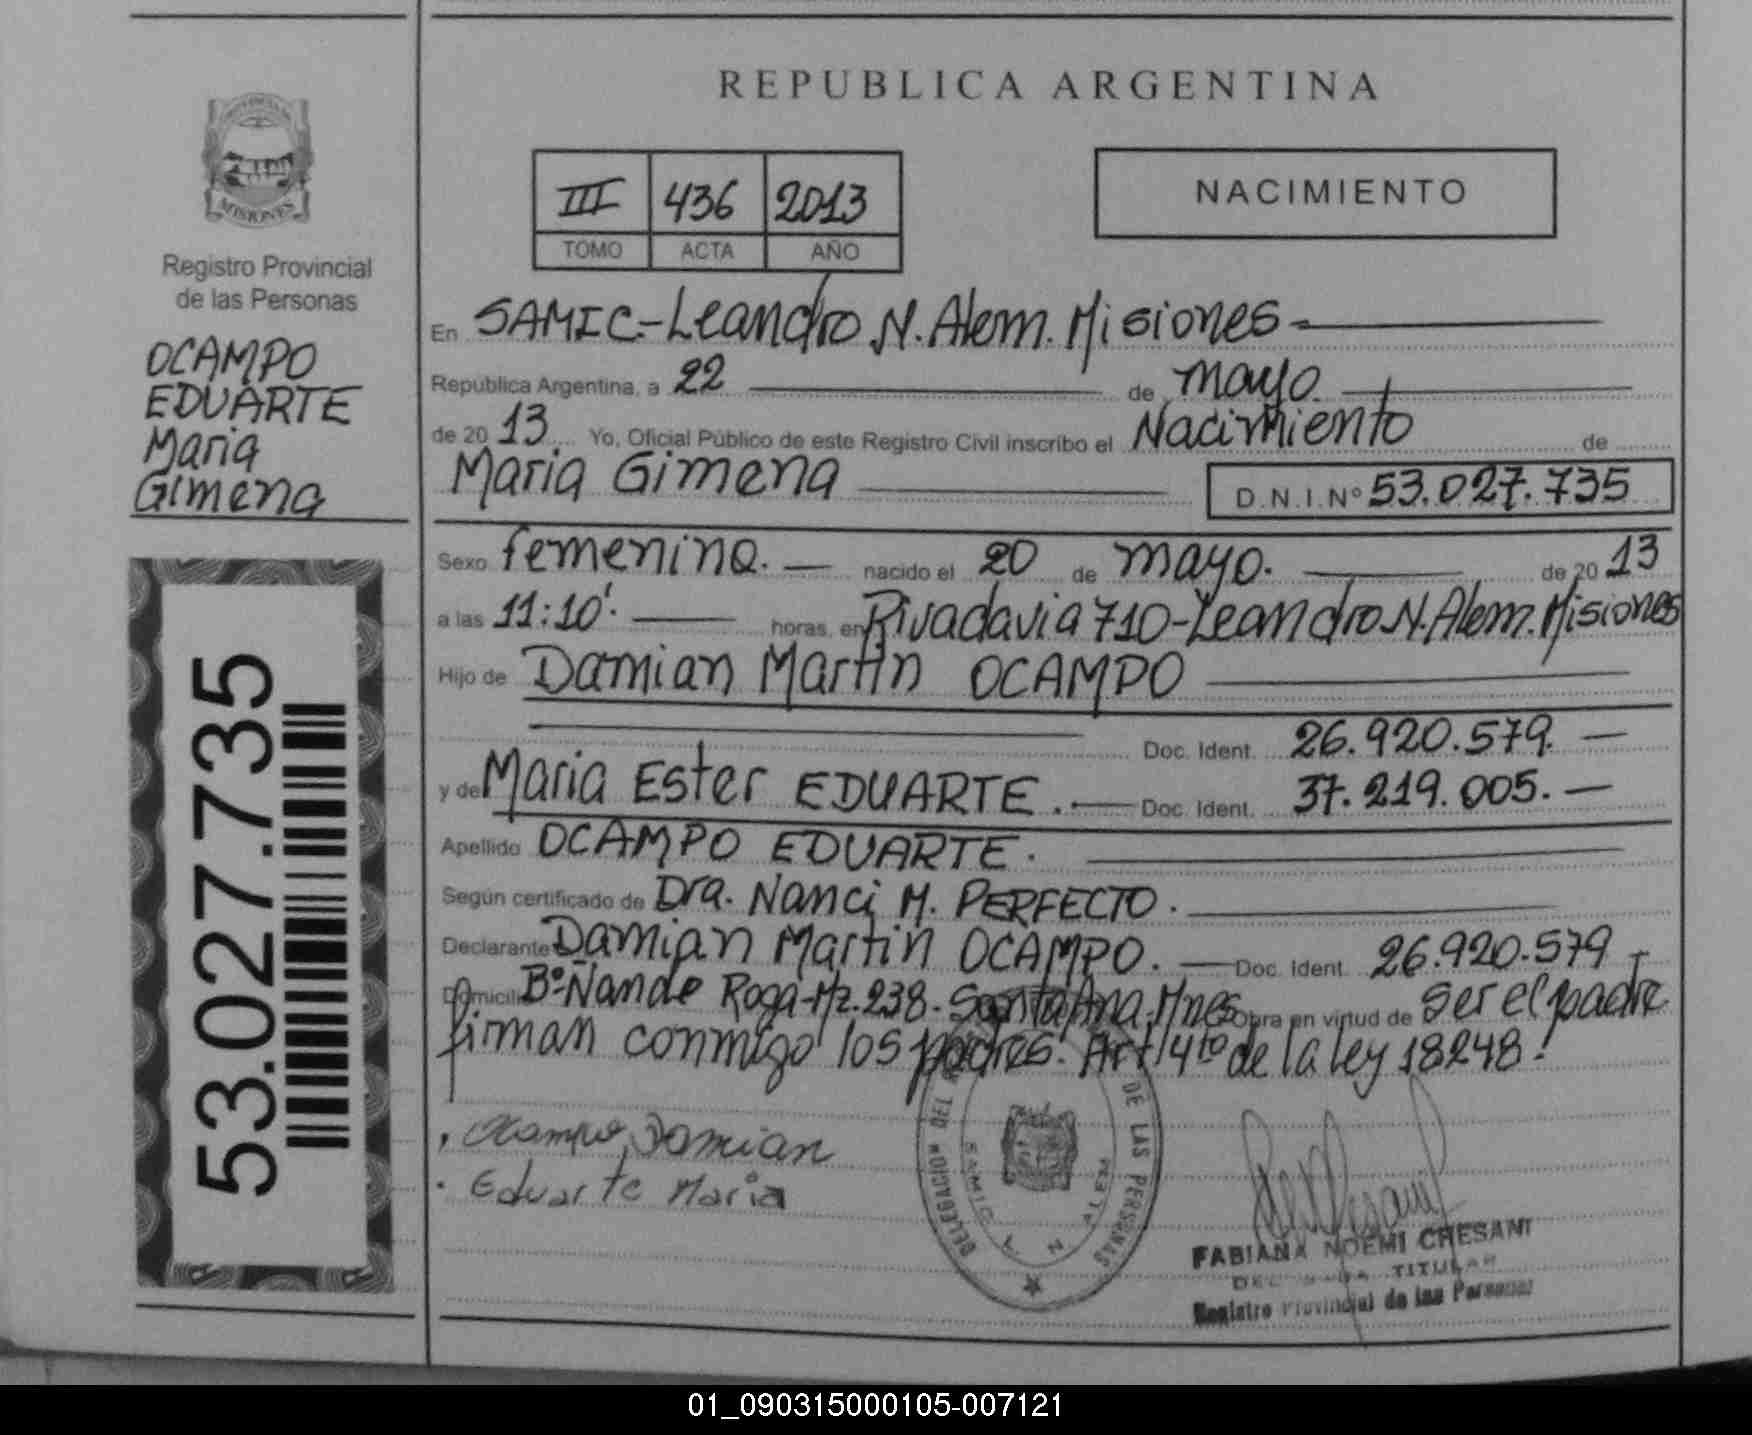 REPUBLICA ARGENTINA
MISIONES
Registro Provincial
de las Personas
OCAMPO
EDUARTE
Maria
Gimena
53.027.735
III 436 2013
TOMO ACTA AÑO
NACIMIENTO
En SAMIC-Leandro N. Alem. Misiones
República Argentina, a 22 de mayo.
de 20 13 Yo, Oficial Público de este Registro Civil inscribo el Nacimiento de
Maria Gimena D.N.I.Nº 53.027.735
Sexo femenino. nacido el 20 de mayo. de 20 13
a las 11:10'. horas, en Rivadavia 710-Leandro N. Alem. Misiones
Hijo de Damian Martin OCAMPO
Doc. Ident. 26.920.579.
y de Maria Ester EDUARTE. Doc. Ident. 37.219.005.
Apellido OCAMPO EDUARTE.
Según certificado de Dra. Nanci M. PERFECTO.
Declarante Damian Martin OCAMPO. Doc. Ident. 26.920.579
Domicilio Bº Ñande Roga-Mz.238. Santa Ana. Mnes Obra en virtud de ser el padre
firman conmigo los padres. Art 4to de la ley 18248!
Ocampo Damian
Eduarte Maria
DELEGACION DEL DE LAS PERSONAS
SAMIC N ALEM
FABIANA NOEMI CHESANI
TITULAR
Registro Provincial de las Personas
01_090315000105-007121